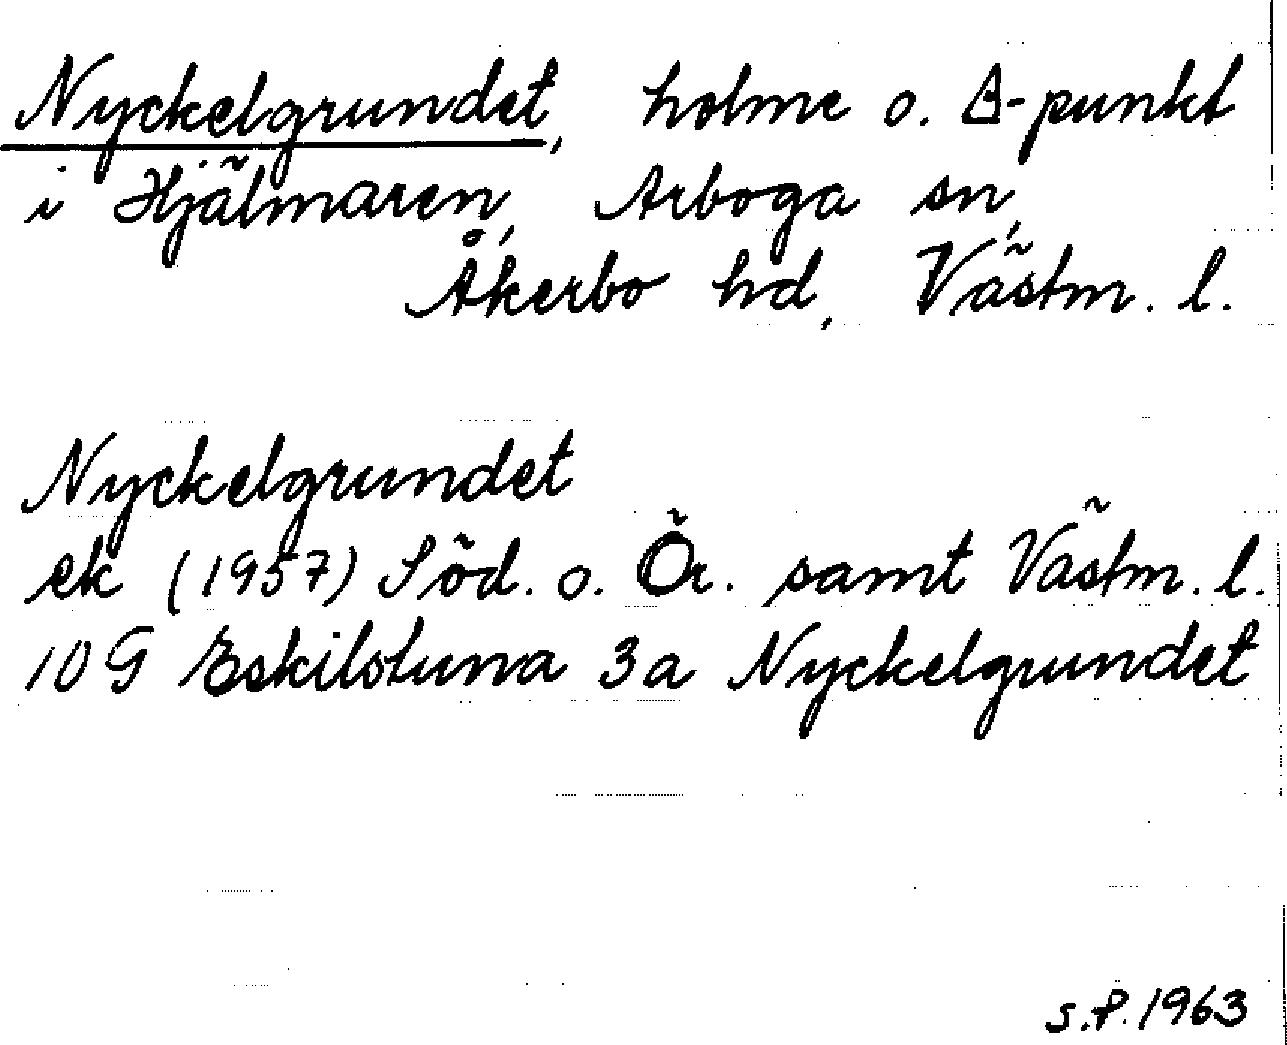 Nyckelgrundet, holme o. Δ-punkt
i Hjälmaren, Arboga sn,
Åkerbo hd, Västm. l.
Nyckelgrundet
ek (1957) Söd. o. Ör. samt Västm. l.
10 G Eskilstuna 3a Nyckelgrundet
S.P. 1963